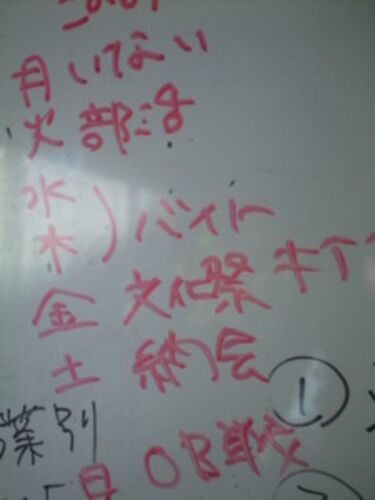 月 いけない
火 部活
水
木 ) バイト
金 文化祭
土 納会
①
業別
日 OB戦